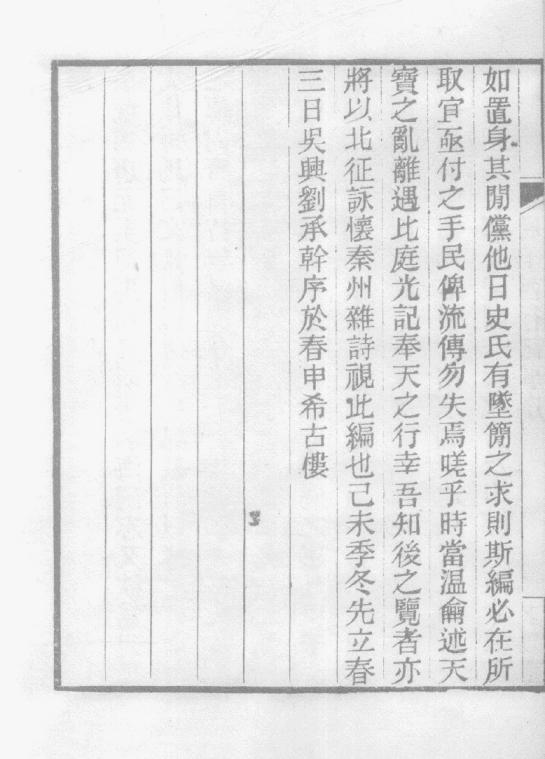 如置身其閒儻他日史氏有墜簡之求則斯編必在所
取宜亟付之手民俾流傳勿失焉嗟乎時當温龠述天
寶之亂離遇比庭光記奉天之行幸吾知後之覽者亦
將以北征詠懷秦州雜詩視此編也己未季冬先立春
三日吳興劉承幹序於春申希古樓